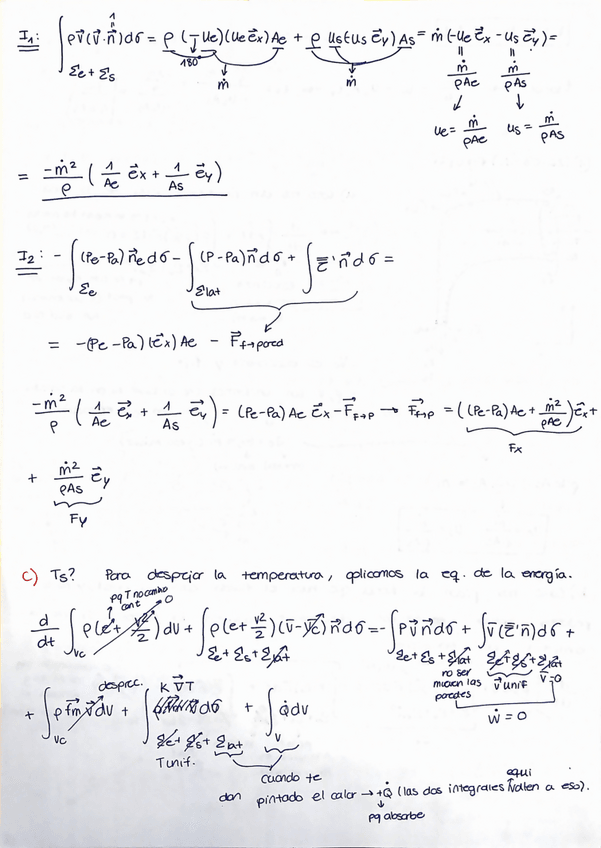 I₁: ∫_{Σe+Σs} ρ v⃗ (v⃗·n⃗) dσ = ρ (-ue)(ue e⃗x) Ae + ρ us(-us e⃗y) As = ṁ (-ue e⃗x - us e⃗y) =
1
180°
ṁ ṁ
ṁ/ρAe ṁ/ρAs
ue = ṁ/ρAe us = ṁ/ρAs
= -ṁ²/ρ ( 1/Ae e⃗x + 1/As e⃗y )
I₂: - ∫_{Σe} (Pe-Pa) n⃗e dσ - ∫_{Σlat} (P-Pa) n⃗ dσ + ∫ τ̿' n⃗ dσ =
= -(Pe-Pa)(-e⃗x) Ae - F⃗f→pared
-ṁ²/ρ ( 1/Ae e⃗x + 1/As e⃗y ) = (Pe-Pa) Ae e⃗x - F⃗f→p → F⃗f→p = ( (Pe-Pa) Ae + ṁ²/ρAe ) e⃗x +
Fx
+ ṁ²/ρAs e⃗y
Fy
c) Ts? Para despejar la temperatura, aplicamos la eq. de la energía.
pq T no cambia
cont 0
d/dt ∫_{Vc} ρ(e + v²/2) dV + ∫_{Σe+Σs+Σlat} ρ(e + v²/2)(v̄ - v̄c) n⃗ dσ = - ∫_{Σe+Σs+Σlat} P v̄ n⃗ dσ + ∫_{Σe+Σs+Σlat} v̄(τ̿' n̄) dσ +
no se mueven las paredes
v̄ unif v̄=0
Ẇ = 0
desprec. K ∇⃗T
+ ∫_{Vc} ρ f⃗m v⃗ dV + ∫_{Σe+Σs+Σlat} dσ + ∫_{V} Q̇ dV
T unif.
cuando te
dan pintado el calor → +Q̇ (las dos integrales equivalen a eso).
pq absorbe